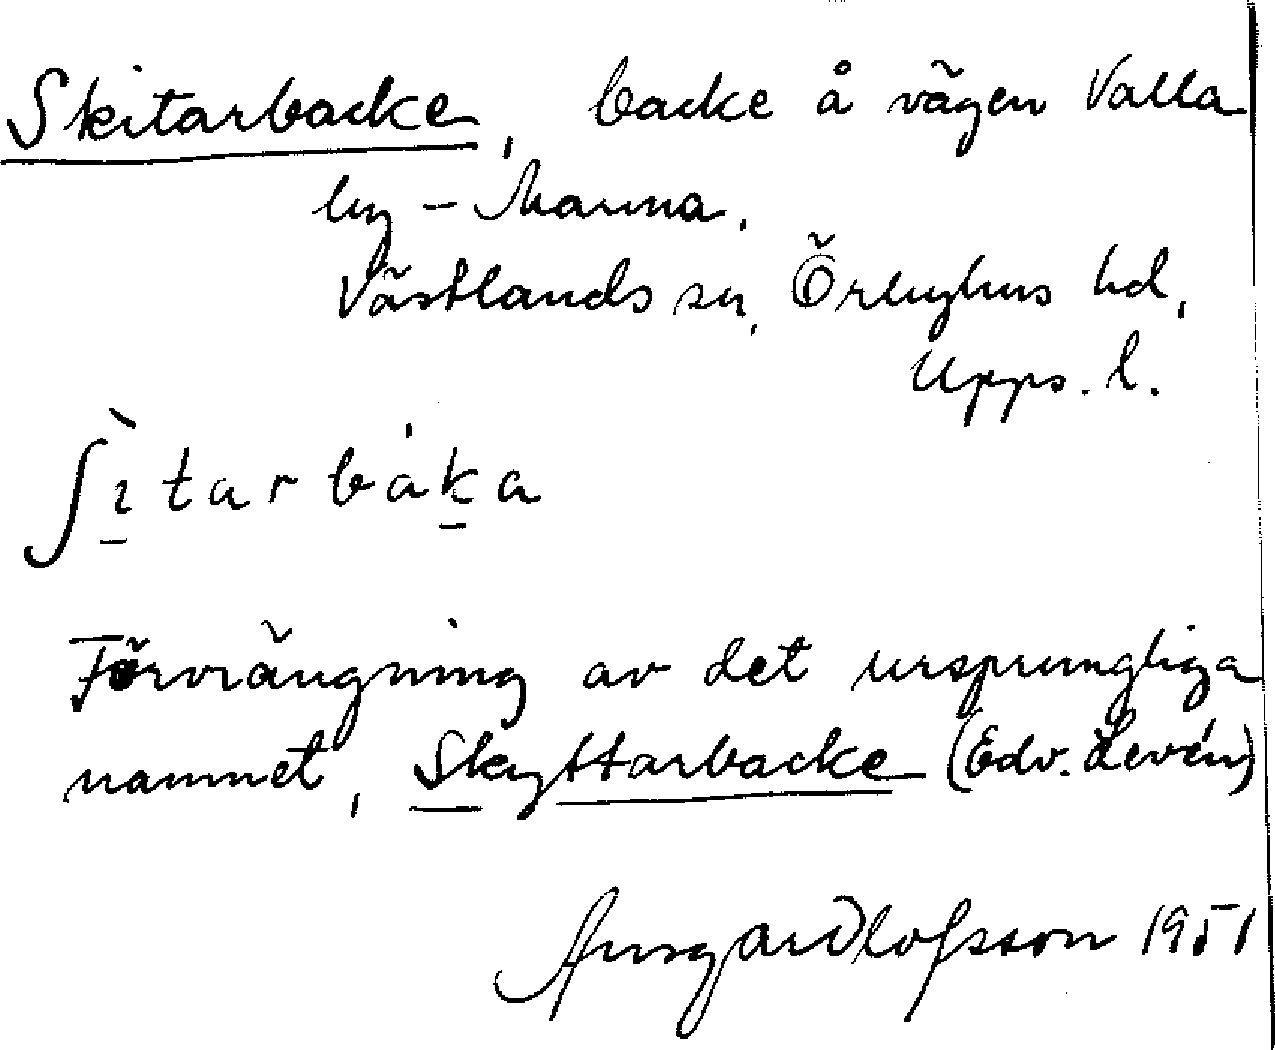 Skitarbacke, backe å vägen Valla
by - Marma,
Västlands sn, Örbyhus hd,
Upps. l.
ʃı̀tarbáka
Förvrängning av det ursprungliga
namnet, Skyttarbacke (Edv. Levén)
Olofsson 1951